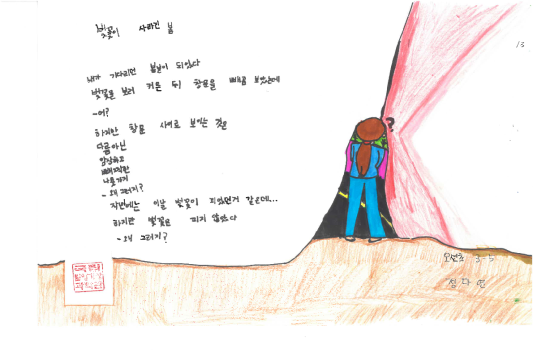 벚꽃이 사라진 봄
내가 기다리던 봄날이 되었다
벚꽃을 보러 커튼 뒤 창문을 빼꼼 보았는데
-어?
하지만 창문 사이로 보이는 것은
다름아닌
앙상하고
빼쩍마른
나뭇가지
- 왜 그러지?
작년에는 이날 벚꽃이 피었던거 같은데...
하지만 벚꽃은 피지 않았다
- 왜 그러지?
?
13
3-5